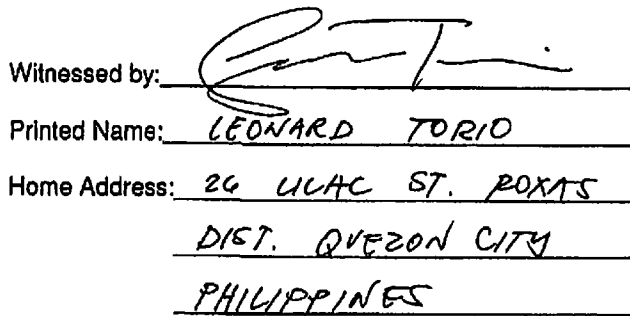 Witnessed by:
Printed Name: LEONARD TORIO
Home Address: 26 LILAC ST. ROXAS
DIST. QUEZON CITY
PHILIPPINES